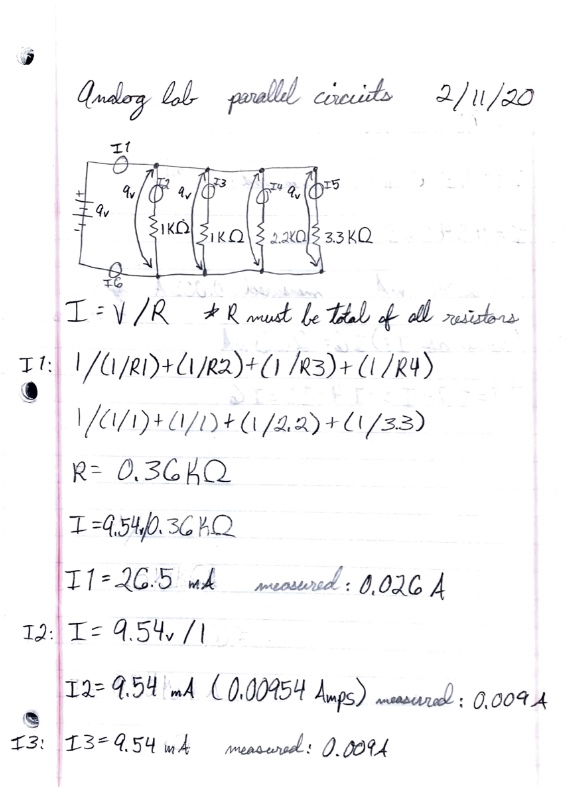 Analog lab parallel circuits 2/11/20
I1
9v I2 9v I3 I4 9v I5
+ 9v -
1KΩ 1KΩ 2.2KΩ 3.3KΩ
I6
I = V/R * R must be total of all resistors
I1: 1/(1/R1)+(1/R2)+(1/R3)+(1/R4)
1/(1/1)+(1/1)+(1/2.2)+(1/3.3)
R= 0.36KΩ
I=9.54v/0.36KΩ
I1=26.5 mA measured: 0.026 A
I2: I= 9.54v/1
I2=9.54 mA (0.00954 Amps) measured: 0.009A
I3: I3=9.54 mA measured: 0.009A